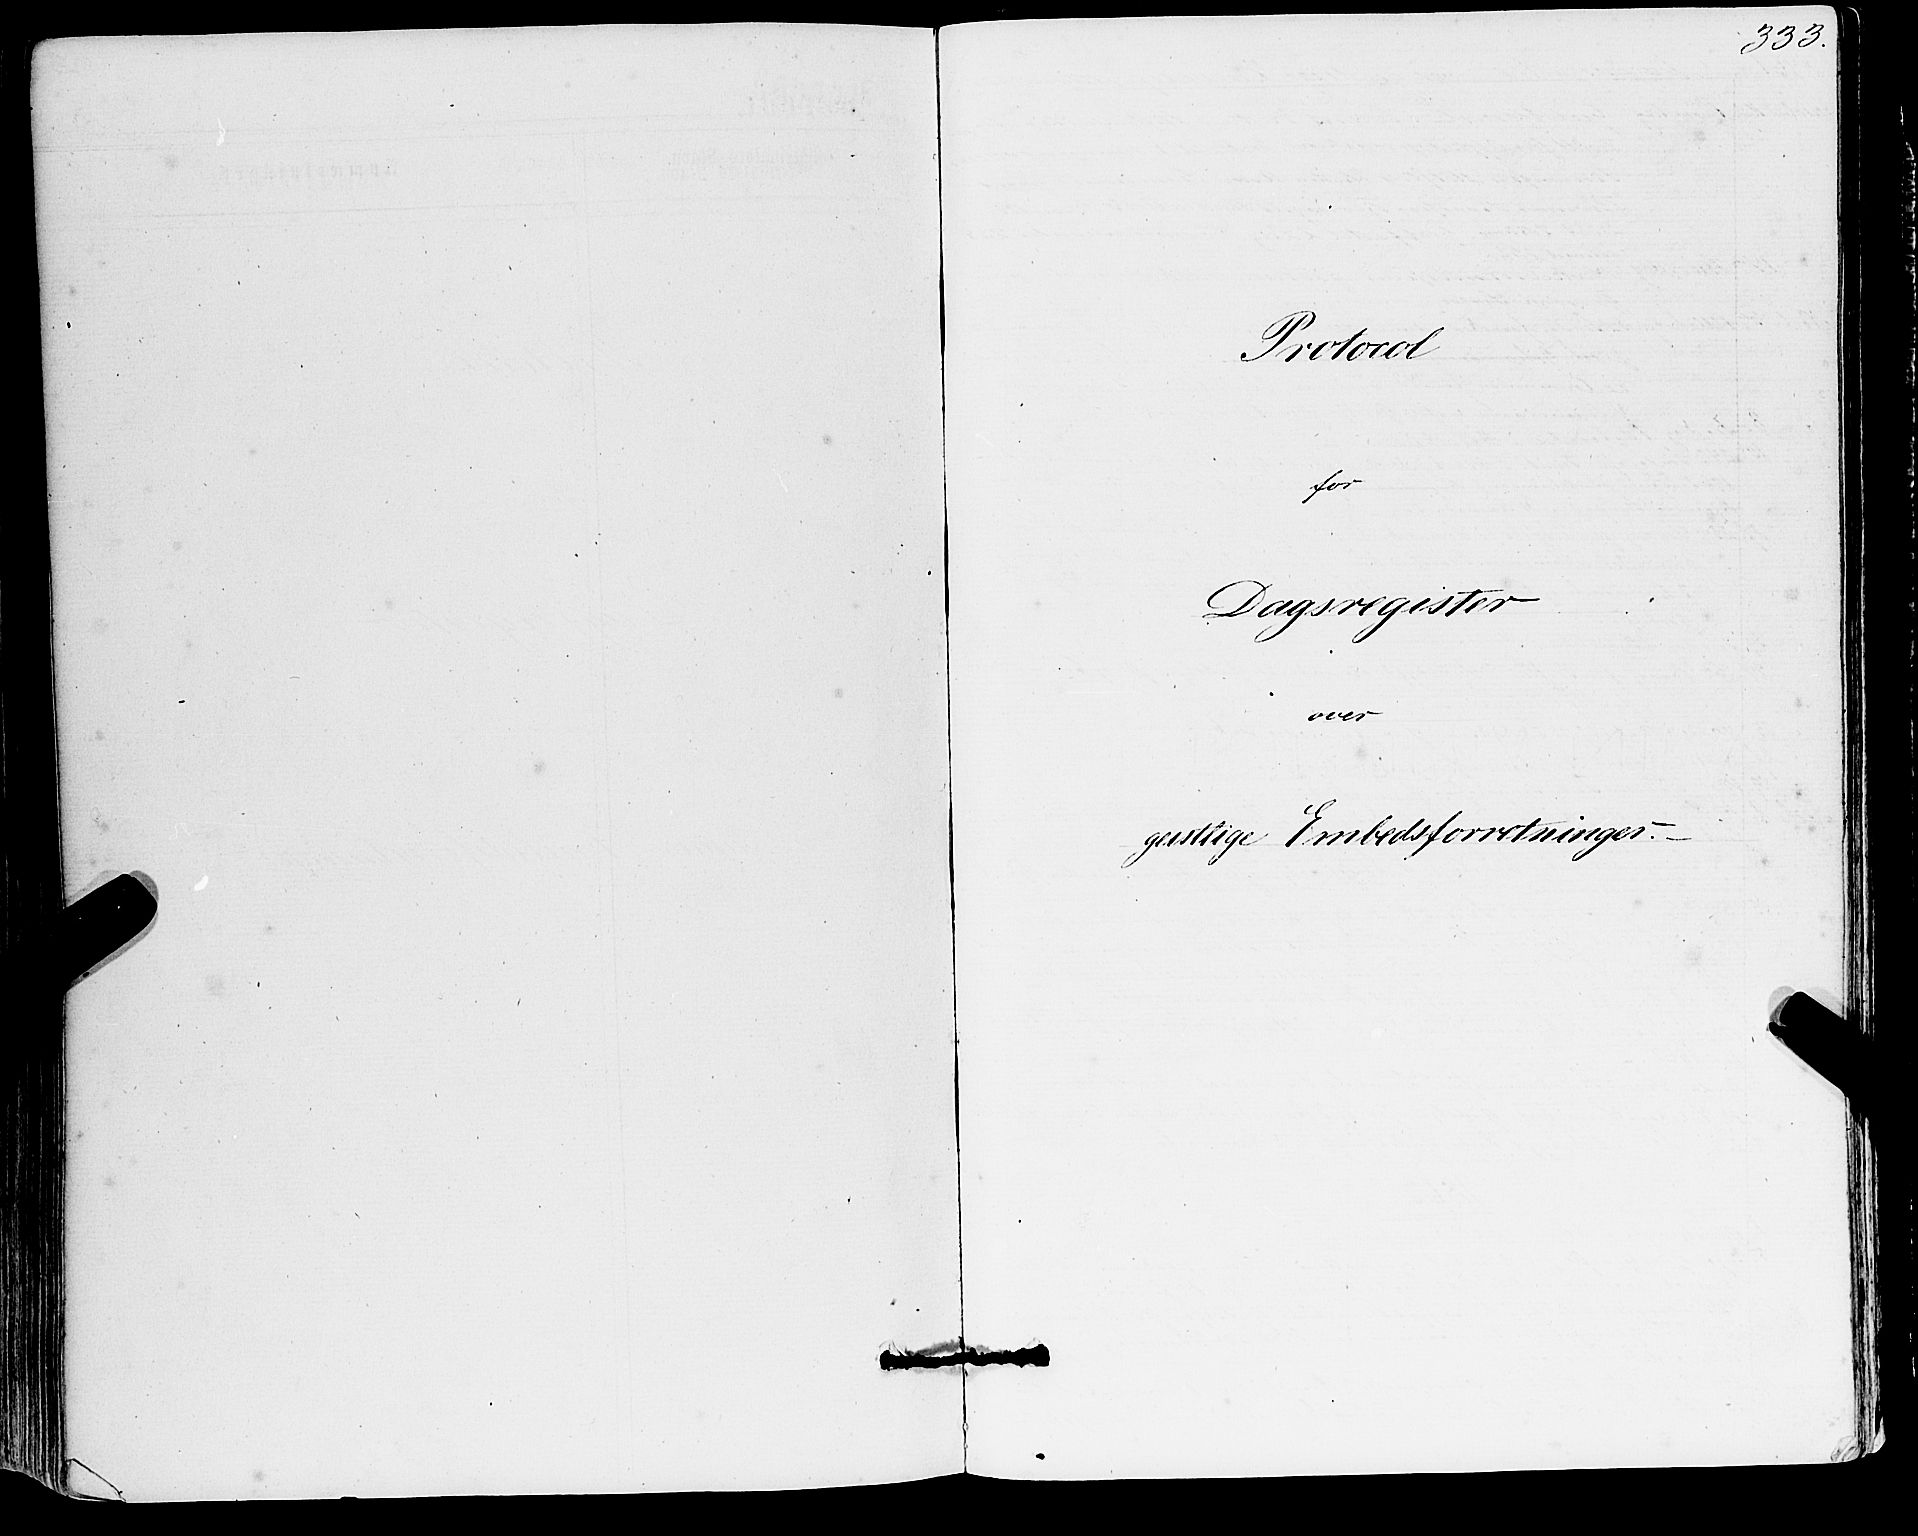 333.
Protocol
for
Dagsregister
over
geistlige Embedsforretninger.—